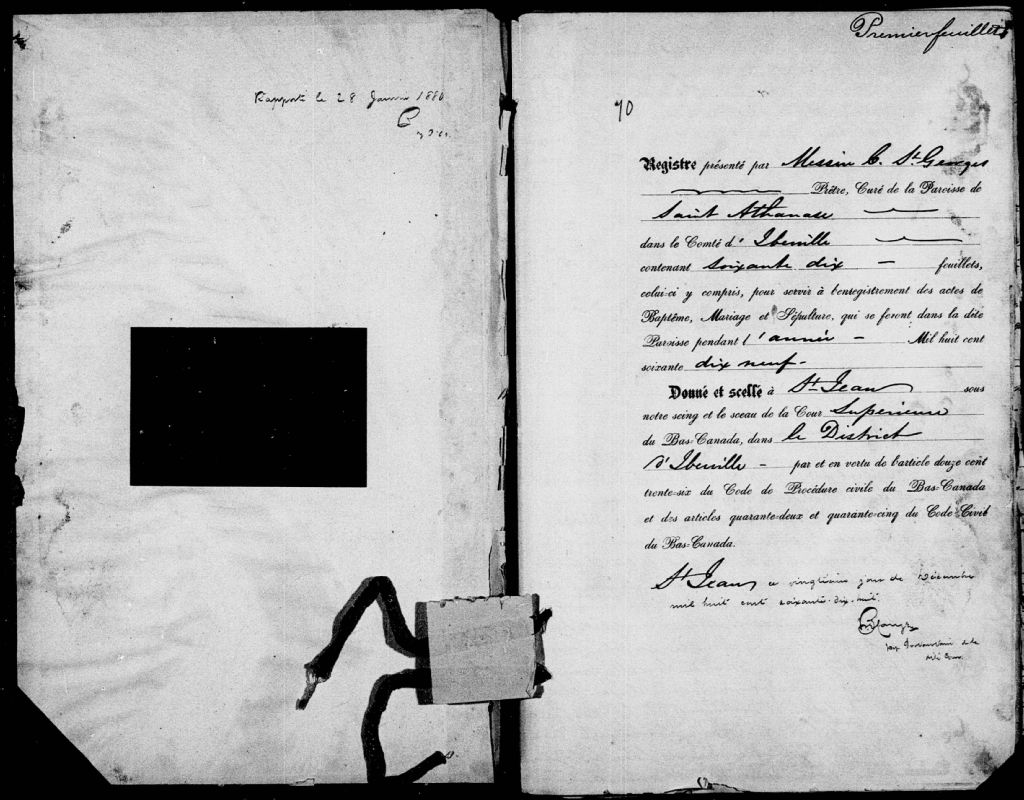 Rapporté le 28 Janvier 1880
Premier feuillet
70
Registre présenté par Messire C. St. Georges
Prêtre, Curé de la Paroisse de
Saint Athanase
dans le Comté d'Iberville
contenant soixante dix - feuillets,
celui-ci y compris, pour servir à l'enregistrement des actes de
Baptême, Mariage et Sépulture, qui se feront dans la dite
Paroisse pendant l'année - Mil huit cent
soixante dix neuf-
Donné et scellé à St Jean sous
notre seing et le sceau de la Cour Supérieure
du Bas-Canada, dans le District
d'Iberville - par et en vertu de l'article douze cent
trente-six du Code de Procédure civile du Bas-Canada
et des articles quarante-deux et quarante-cinq du Code Civil
du Bas-Canada.
St Jean ce vingtième jour de Décembre
mil huit cent soixante-dix-huit.
de la
dite Cour.